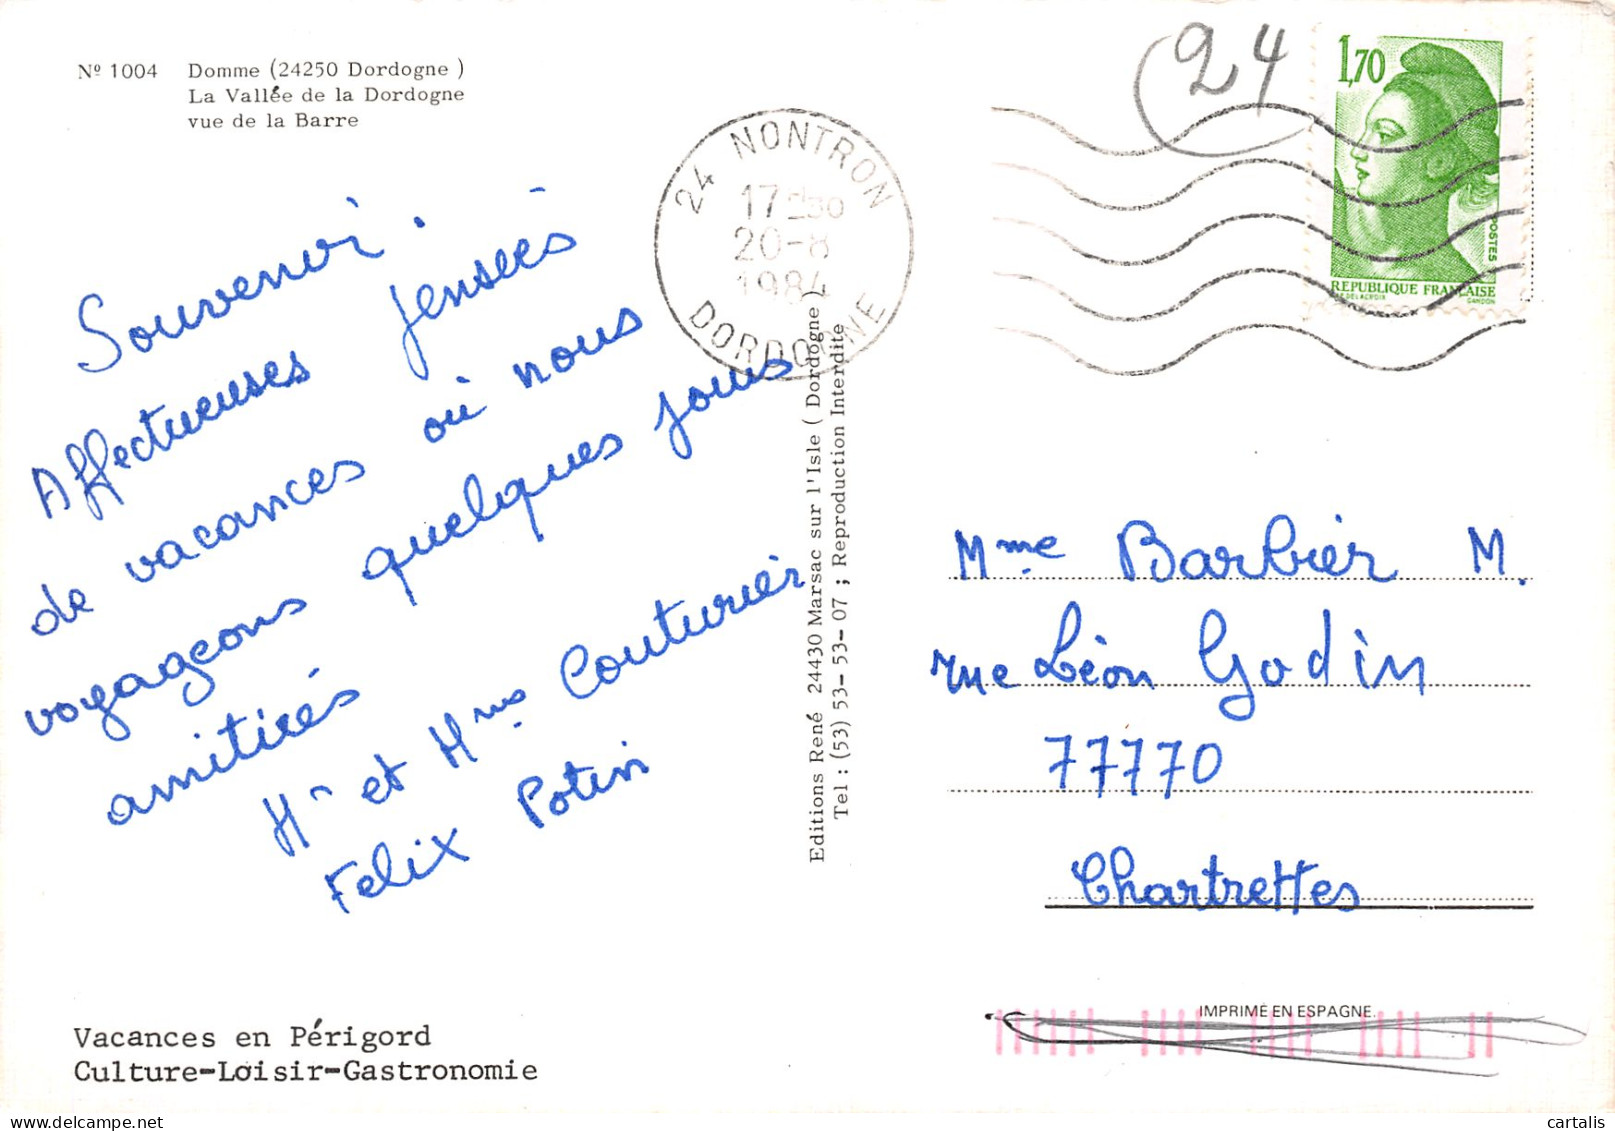 Nº 1004 Domme (24250 Dordogne )
La Vallée de la Dordogne
vue de la Barre
24 NONTRON
17 H 30
20-8
1984
DORDOGNE
24
1,70
POSTES
REPUBLIQUE FRANÇAISE
DELACROIX GANDON
Souvenir.
Affectueuses pensées
de vacances où nous
voyageons quelques jours
amitiés
Mr et Mme Couturier
Felix Potin
Editions René 24430 Marsac sur l'Isle ( Dordogne )
Tel : (53) 53-53-53-07 ; Reproduction Interdite
Mme Barbier M.
rue Léon Godin
77770
Chartrettes
Vacances en Périgord
Culture-Loisir-Gastronomie
IMPRIMÉ EN ESPAGNE.
cartalis